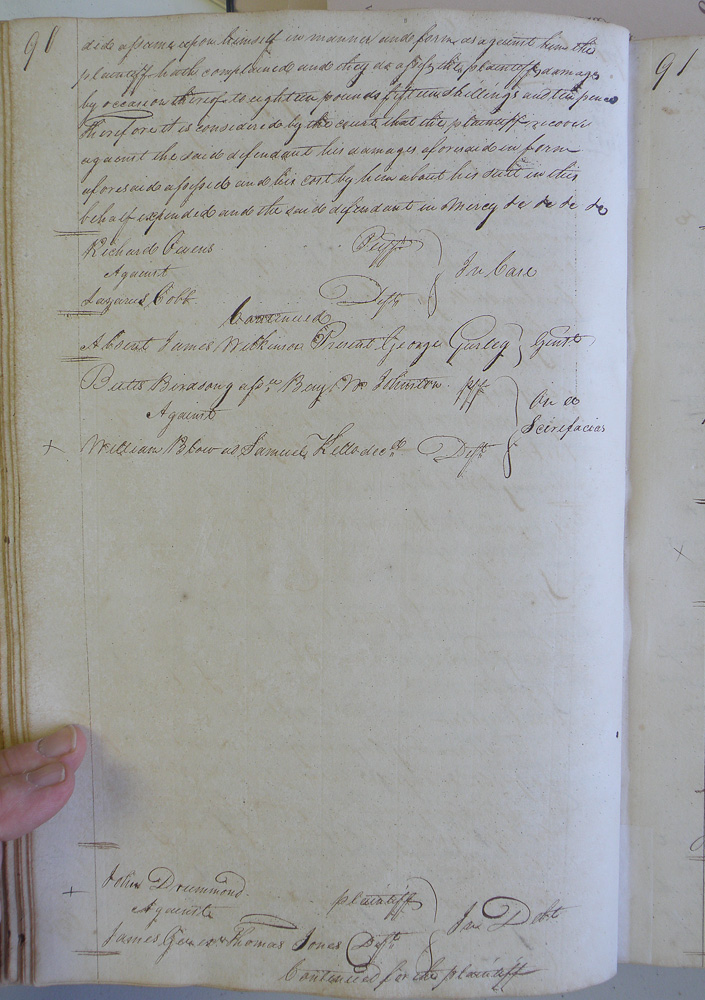 90
91
did assume upon himself in manner and form as against him the
plaintiff hath complained and they do assess the plaintiffs damage
by occasion thereof to eighteen pounds fifteen shillings and ten pence
therefore it is considered by the court that the plaintiff recover
against the said defendant his damages aforesaid in form
aforesaid assessed and his cost by him about his suit in this
behalf expended and the said defendant in Mercy &c &c &c &c
Richard Owens Plff
Against
In Case
Lazarus Cobb Deft
Continued
Absent James Wilkinson Present George Gurley Gent
Birdsong assee Benja Wm Johnston plf
On a
Against
Scirefacias
William Blow ad Samuel Kello decd Deft
John Drummond plaintiff
Against
In Debt
James Thomas Jones Deft
Continued for the plaintiff